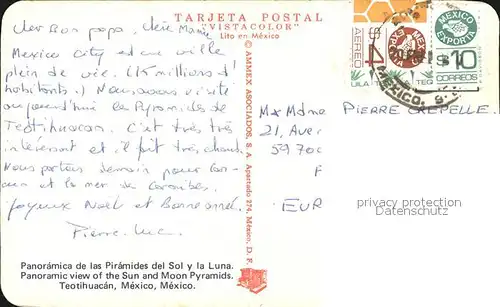 TARJETA POSTAL
"VISTACOLOR"
Lito en México
Cher Bon papa, chère Mamie
Mexico City est une ville
plein de vie. (15 millions d'
habitants.) Nous avons visité
aujourd'hui les Pyramides de
Teotihuacan. C'est très
intéressant et il fait très chaud.
Nous partons demain pour Can-
cun et la mer de Caraibes.
Joyeux Noël et Bonne année.
Pierre-Luc
Panorámica de las Pirámides del Sol y la Luna.
Panoramic view of the Sun and Moon Pyramids.
Teotihuacán, México, México.
© AMMEX ASOCIADOS, S. A. Apartado 274, México, D. F.
AEREO
$4
MEXICO
EXPORTA
TEQ
UILA
MEXICO
EXPORTA
$10
CORREOS
MEXICO,
M x Mdme PIERRE CREPELLE.
21, Aven
59700
F
EUR
privacy protection
privacy protection